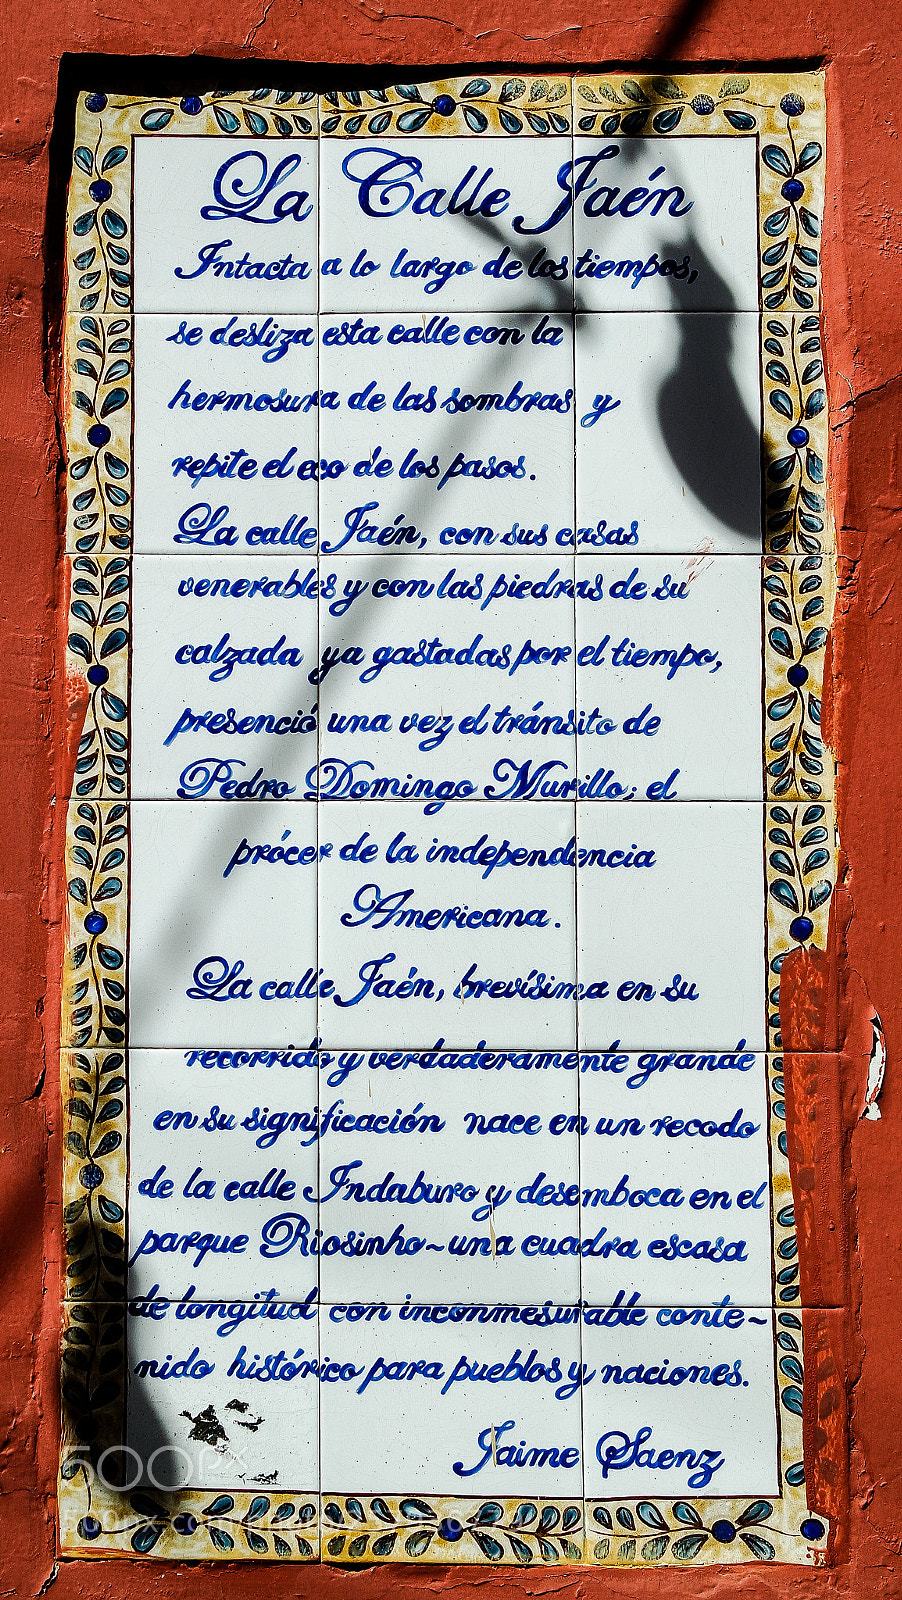 La Calle Jaén
Intacta a lo largo de los tiempos,
se desliza esta calle con la
hermosura de las sombras y
repite el eco de los pasos.
La calle Jaén, con sus casas
venerables y con las piedras de su
calzada ya gastadas por el tiempo,
presenció una vez el tránsito de
Pedro Domingo Murillo; el
prócer de la independencia
Americana.
La calle Jaén, brevísima en su
recorrido y verdaderamente grande
en su significación nace en un recodo
de la calle Indaburo y desemboca en el
parque Riosinho~una cuadra escasa
de longitud con inconmesurable conte~
nido histórico para pueblos y naciones.
Jaime Saenz
500px